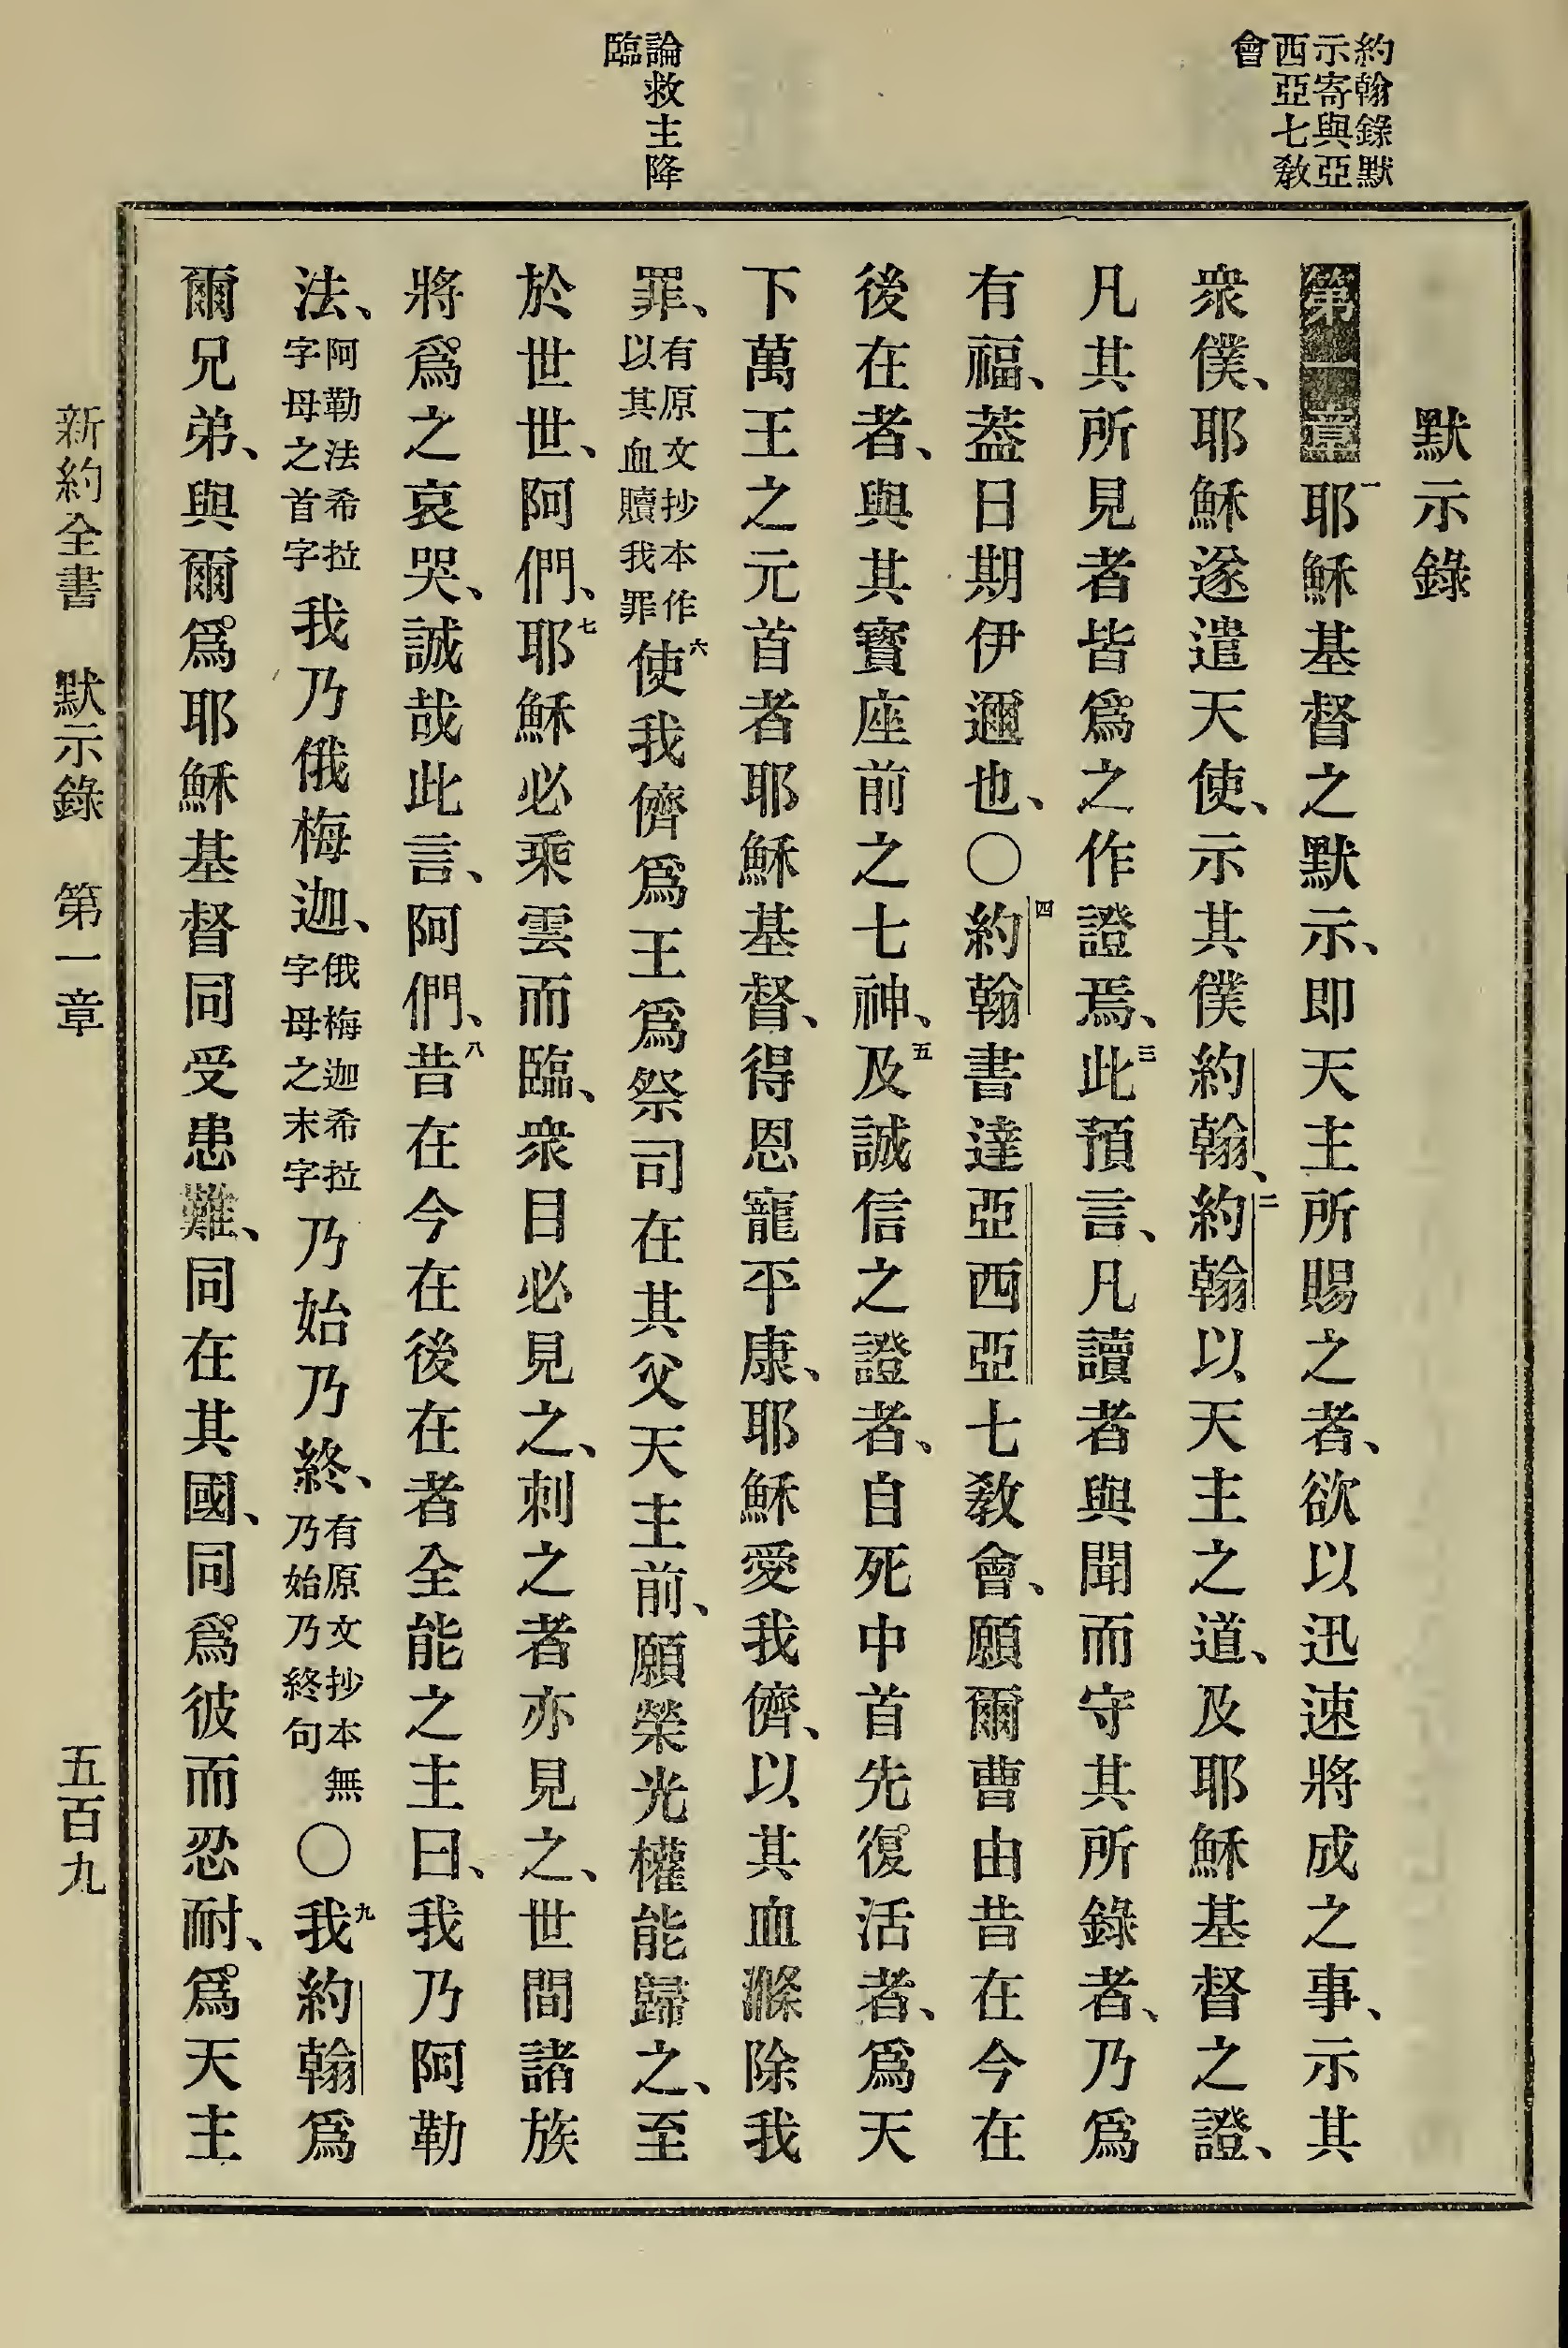 約翰錄默
示寄與亞
西亞七敎
會
論救主降
臨
默示錄
第一章一耶穌基督之默示、即天主所賜之者、欲以迅速將成之事、示其
衆僕、耶穌遂遣天使、示其僕約翰、二約翰以天主之道、及耶穌基督之證、
凡其所見者皆爲之作證焉、三此預言、凡讀者與聞而守其所錄者、乃爲
有福、蓋日期伊邇也、〇四約翰書達亞西亞七敎會、願爾曹由昔在今在
後在者、與其寶座前之七神、五及誠信之證者、自死中首先復活者、爲天
下萬王之元首者耶穌基督、得恩寵平康、耶穌愛我儕、以其血滌除我
罪、有原文抄本作以其血贖我罪六使我儕爲王爲祭司在其父天主前、願榮光權能歸之、至
於世世、阿們、七耶穌必乘雲而臨、衆目必見之、刺之者亦見之、世間諸族
將爲之哀哭、誠哉此言、阿們、八昔在今在後在者全能之主曰、我乃阿勒
法、阿勒法希拉字母之首字我乃俄梅迦、俄梅迦希拉字母之末字乃始乃終、有原文抄本無乃始乃終句〇九我約翰爲
爾兄弟、與爾爲耶穌基督同受患難、同在其國、同爲彼而忍耐、爲天主
新約全書 默示錄 第一章 五百九